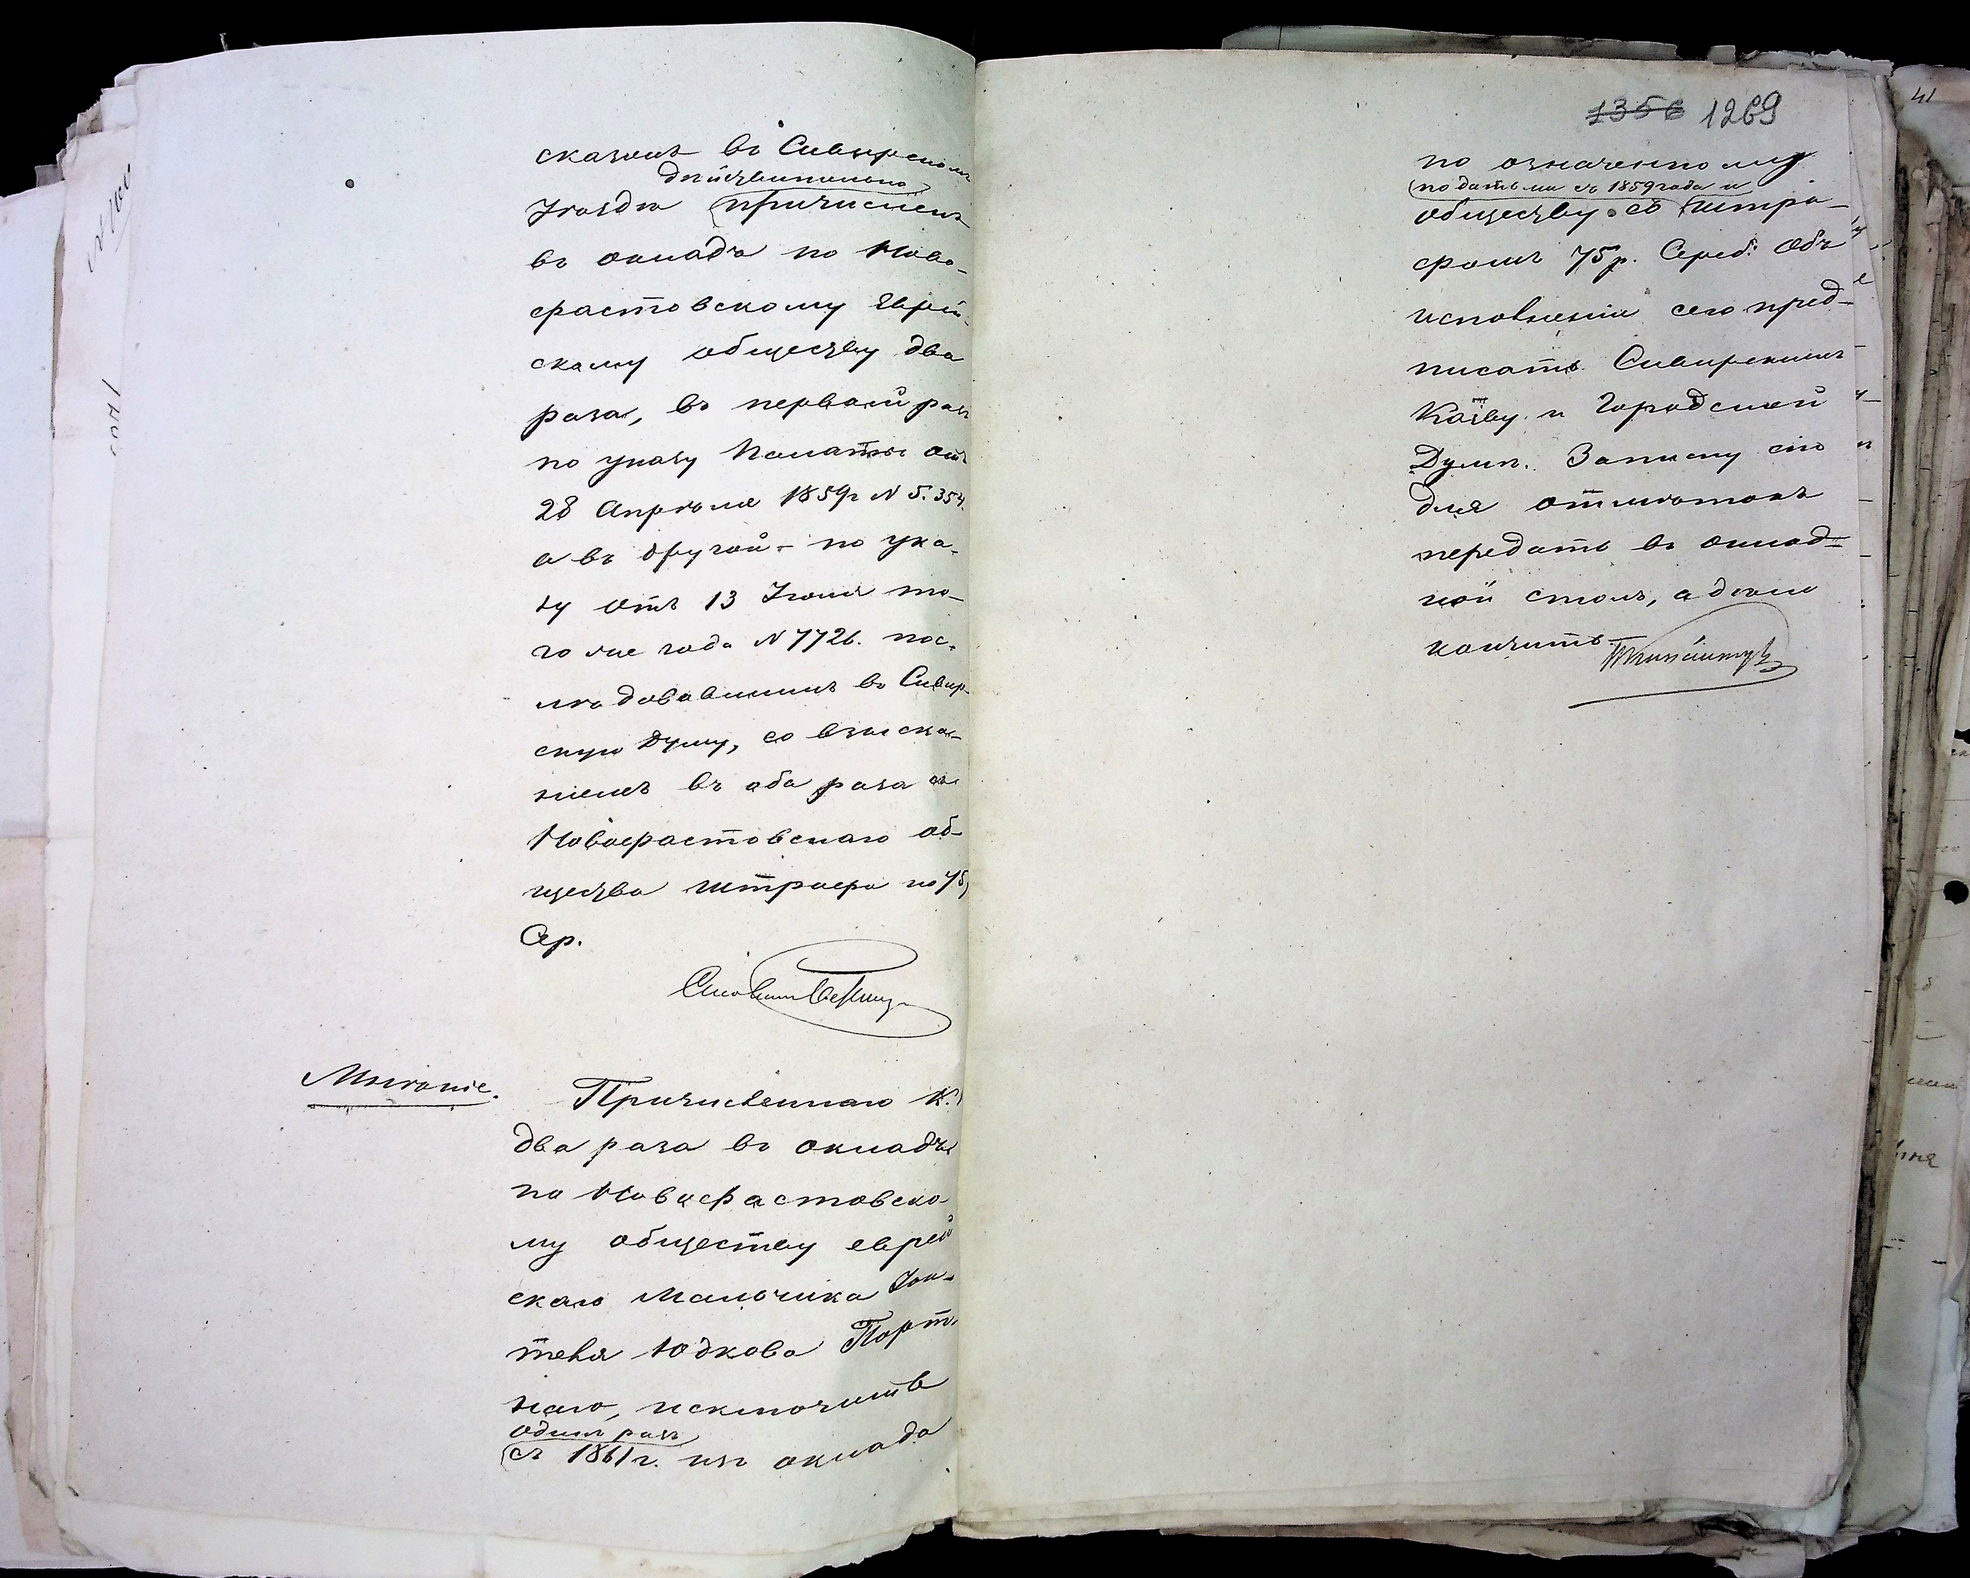 сказомъ въ Сквирскомъ
дѣйствительно
Уѣздѣ причисленъ
въ окладъ по Ново-
фастовскому Еврей-
скому обществу два
раза, въ первый разъ
по указу Палаты отъ
28 Апрѣля 1859 г N 5.354.
а въ другой - по ука-
зу отъ 13 Іюня то-
го же года N 7726. пос-
лѣдовавшимъ въ Сквир-
скую Думу, со взыска-
ніемъ въ оба раза съ
Новофастовскаго об-
щества штрафа по 75 р
Сер.
Мнѣніе.
Причисленнаго
два раза въ окладъ
по Новофастовско-
му обществу еврей
скаго мальчика
теля Юдкова Порт
наго, исключить
одинъ разъ
съ 1861 г. изъ оклада
1356 1269
по означенному
податьми съ 1859 года и
обществу съ штра-
фомъ 75 р. Сереб. Объ
исполненіи сего пред-
писать Сквирскимъ
Каз-ву и Городской
Думѣ. Записку сію
для отмѣтокъ
передать въ оклад-
ной столъ, а дѣло
кончить.
41